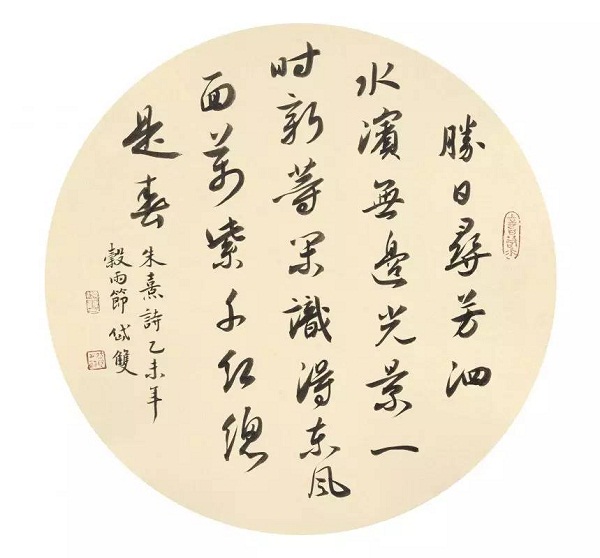 勝日尋芳泗
水濱無邊光景一
时新等闲識得东风
面萬紫千红總
是春
朱熹詩乙未年
穀雨節岱雙